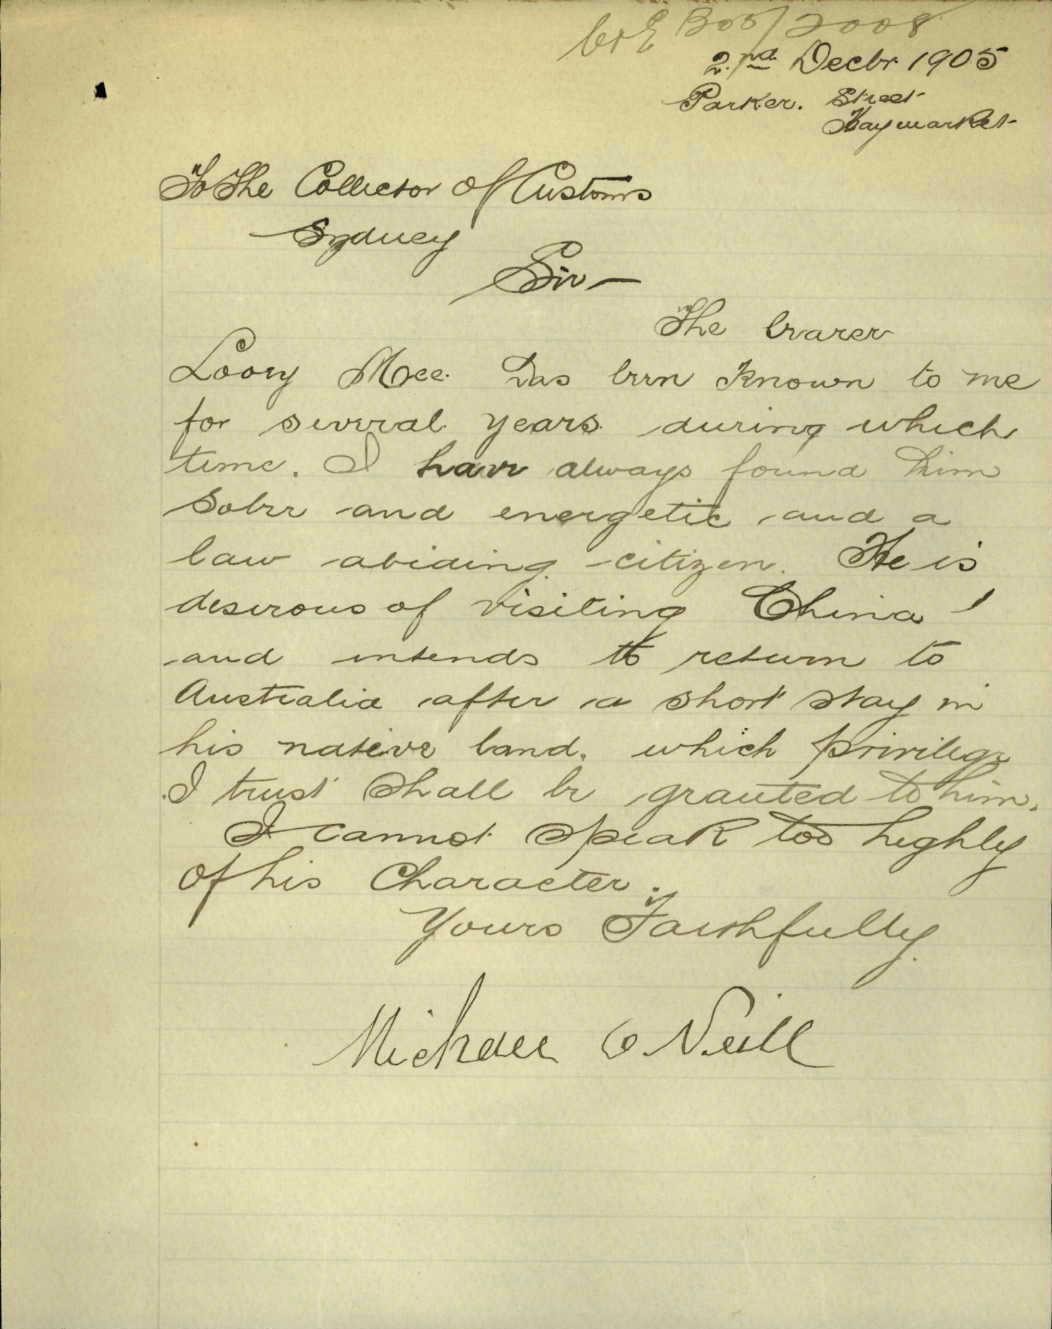 C&E B05/2008
2nd Decbr 1905
Parker. Street
Haymarket
To The Collector of Customs
Sydney
Sir —
The bearer
Looey Mee. has been known to me
for several years during which
time. I have always found him
sober and energetic and a
law abiding citizen. He is
desirous of visiting China
and intends to return to
Australia after a short stay in
his native land. which privilege
I trust shall be granted to him.
I cannot speak too highly
of his Character.
Yours Faithfully
Michael O'Neill